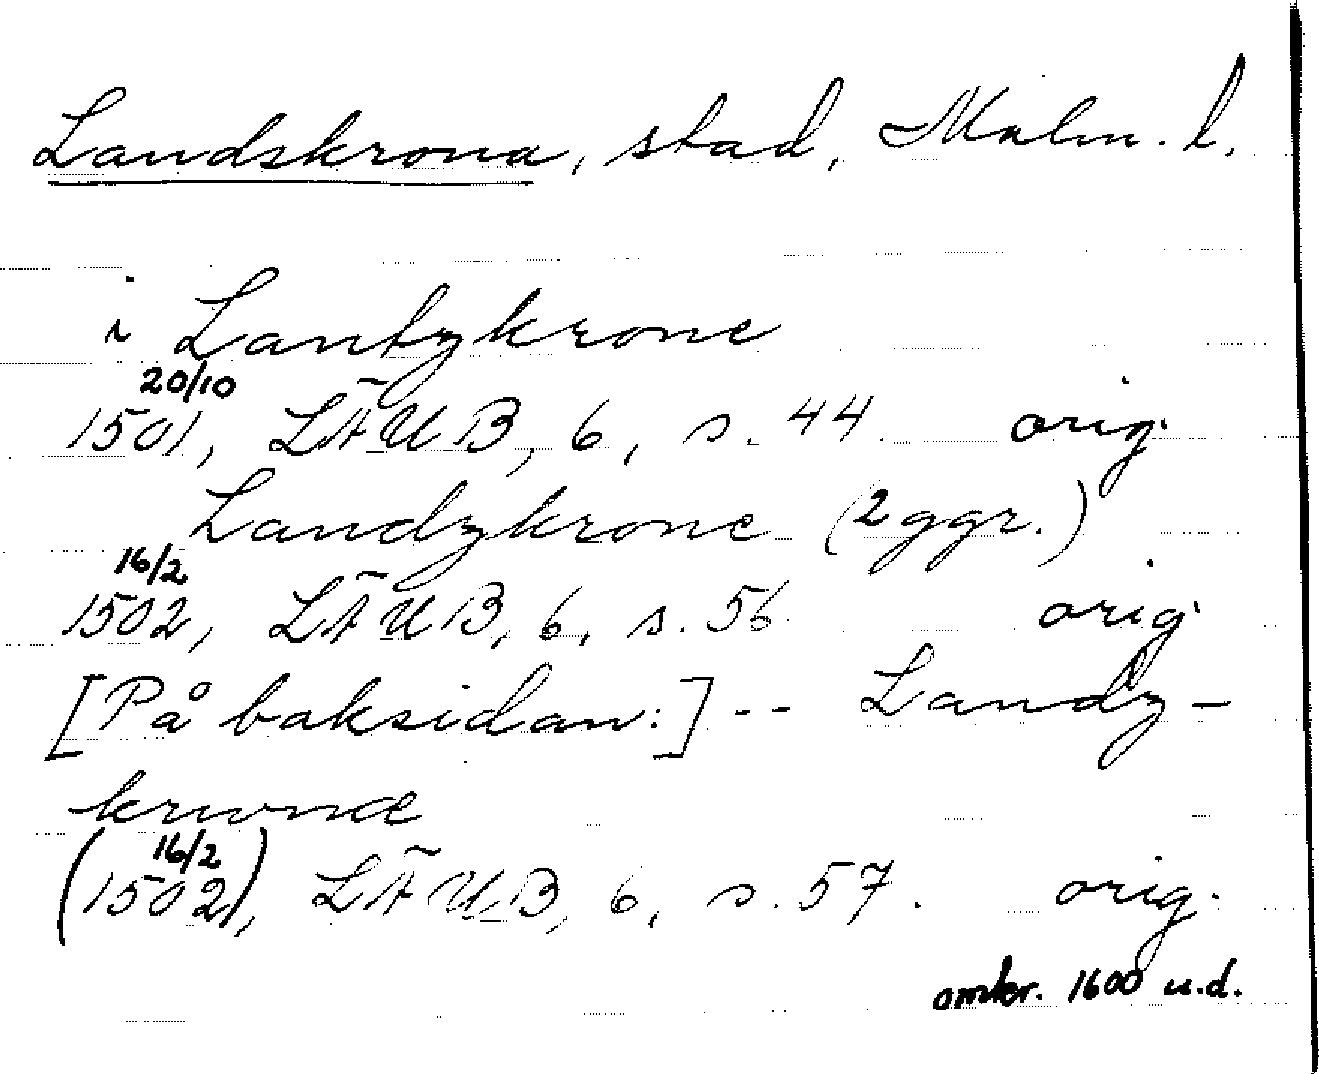 Landskrona, stad, Malm. l.
i Lantzkrone
20/10
1501, LÄUB, 6, s. 44. orig.
Landzkrone (2 ggr.)
16/2
1502, LÄUB, 6, s. 56. orig.
[På baksidan:] -- Landz-
krwnæ
16/2
(1502), LÄUB, 6, s. 57. orig.
omkr. 1600 u.d.